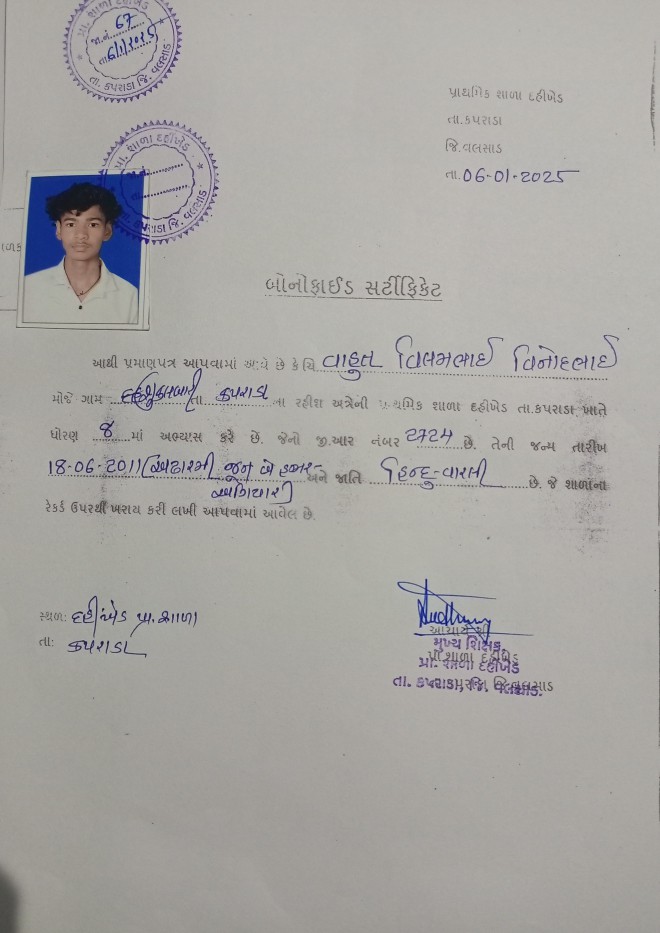 પ્રા. શાળા દહીખેડ
જા.નં. 67
તા. 6/1/2025
તા. કપરાડા જિ. વલસાડ
પ્રાથમિક શાળા દહીખેડ
તા.કપરાડા
જિ.વલસાડ
તા. 06-01-2025
પ્રા. શાળા દહીખેડ
જા.નં.
તા.
તા. કપરાડા જિ. વલસાડ
બોનોફાઈડ સર્ટીફિકેટ
આથી પ્રમાણપત્ર આપવામાં આવે છે કે ચિ વિનોદભાઈ
મોજે ગામ તા કપરાડા ના રહીશ અત્રેની પ્રાથમિક શાળા દહીખેડ તા.કપરાડા ખાતે
ધોરણ ૪ માં અભ્યાસ કરે છે. જેનો જી.આર નંબર 2724 છે. તેની જન્મ તારીખ
18-06-2011 (અઢારમી જૂન બે હજાર અને જાતિ હિન્દુ-વારલી છે. જે શાળાના
અગિયાર)
રેકર્ડ ઉપરથી ખરાય કરી લખી આપવામાં આવેલ છે.
સ્થળ: દહીંખેડ પ્રા. શાળા
તા: કપરાડા
આચાર્ય શ્રી
મુખ્ય શિક્ષક
પ્રા શાળા દહીખેડ
પ્રા. શાળા દહીખેડ
તા. કપરાડા, જિ. વલસાડ.